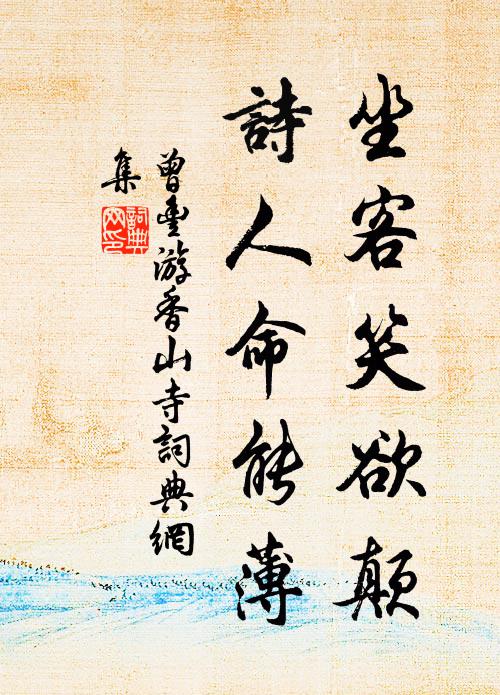 坐客笑欲顛
詩人命能薄
曾豐游香山寺詞典網
集
詞典
网印